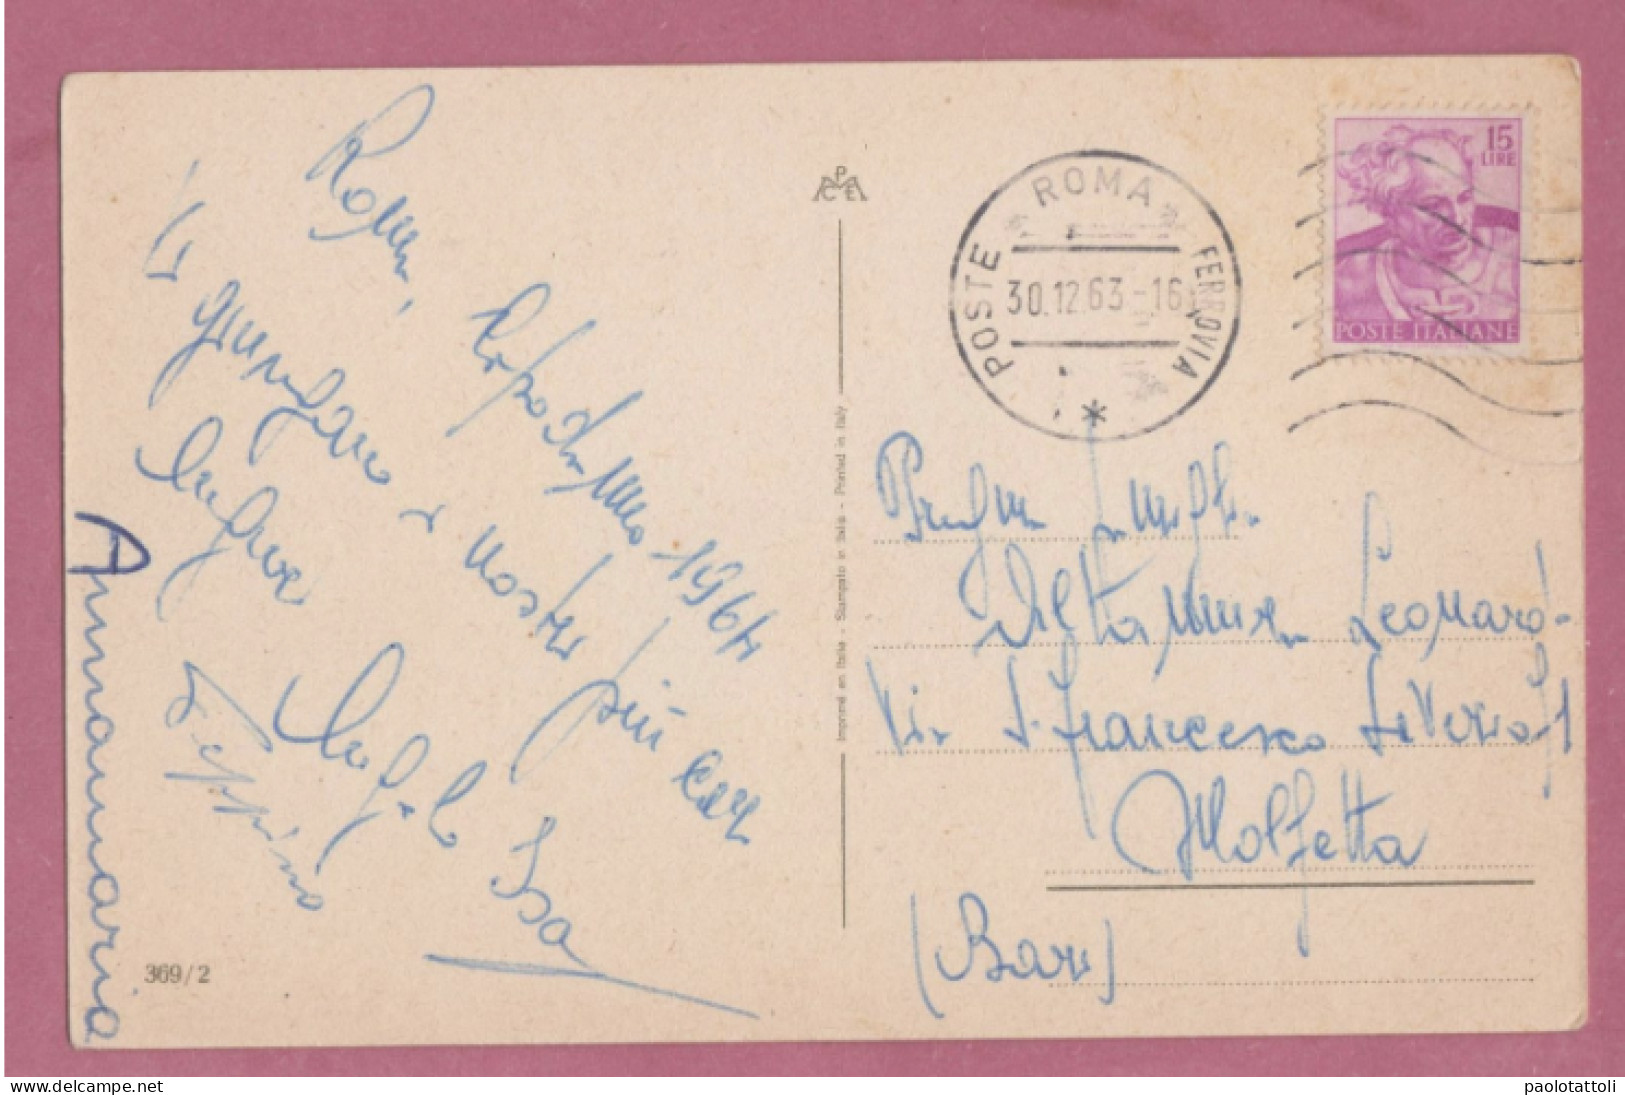 Roma, Capodanno 1964
Vi giungano i nostri più cari
auguri
Angelo
Isa
Peppino
Annamaria
369/2
CPE
Imprimé en Italie - Stampato in Italia - Printed in Italy
POSTE ROMA FERROVIA
30.12.63-16
15
LIRE
POSTE ITALIANE
Altamura Leonardo
Via S. Francesco
Molfetta
(Bari)
www.delcampe.net
paolotattoli